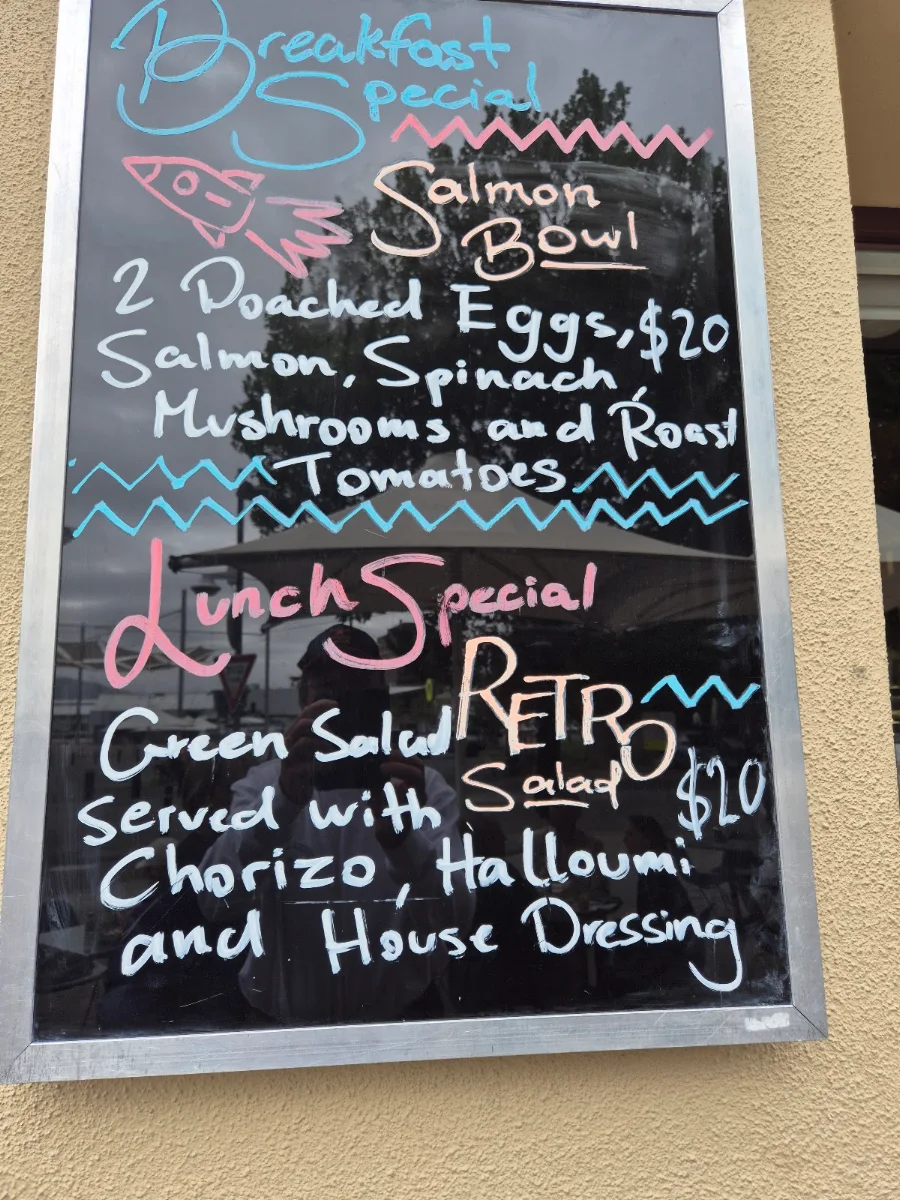 Breakfast
Special
Salmon
Bowl
2 Poached Eggs, $20
Salmon, Spinach,
Mushrooms and Roast
Tomatoes
Lunch Special
RETRO
Salad
$20
Green Salad
served with
Chorizo, Halloumi
and House Dressing